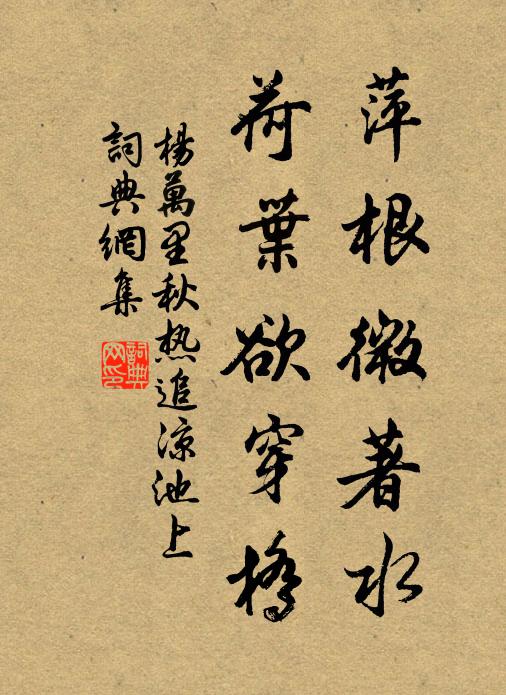 萍根微著水
荷葉欲穿橋
楊萬里秋热追涼池上
詞典網集
詞典
网印